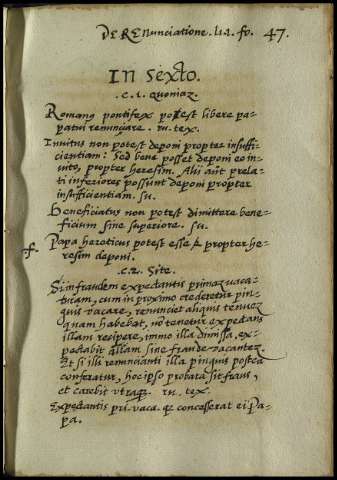 DE REnunciatione. li.1. fo. 47.
In Sexto.
.c. 1. quoniaz.
Romanus pontifex potest libere pa-
patui renunciare. ru. tex.
Inuitus non potest deponi propter insuffi-
cientiam: Sed bene posset deponi eo in-
uito, propter heresim. Alii aut prela-
ti inferiores possunt deponi propter
insufficientiam. su.
Beneficiatus non potest dimittere bene-
ficium sine superiore. su.
Papa hereticus potest esse & propter he-
resim deponi.
.c. 2. Si te.
Si in fraudem expectantis primaz vaca-
turam, cum in proximo crederetur pin-
guis vacare, renunciet aliquis tenuez
quam habebat, no tenetur expectans
illam recipere, immo illa dimissa, ex-
pectabit aliam sine fraude vacantez.
Et si illi renuncianti illa pinguis postea
conferatur, hoc ipso probata sit fraus,
et carebit vtraque. ru. tex.
Expectantis pri. vaca. concesserat ei Pa-
pa.